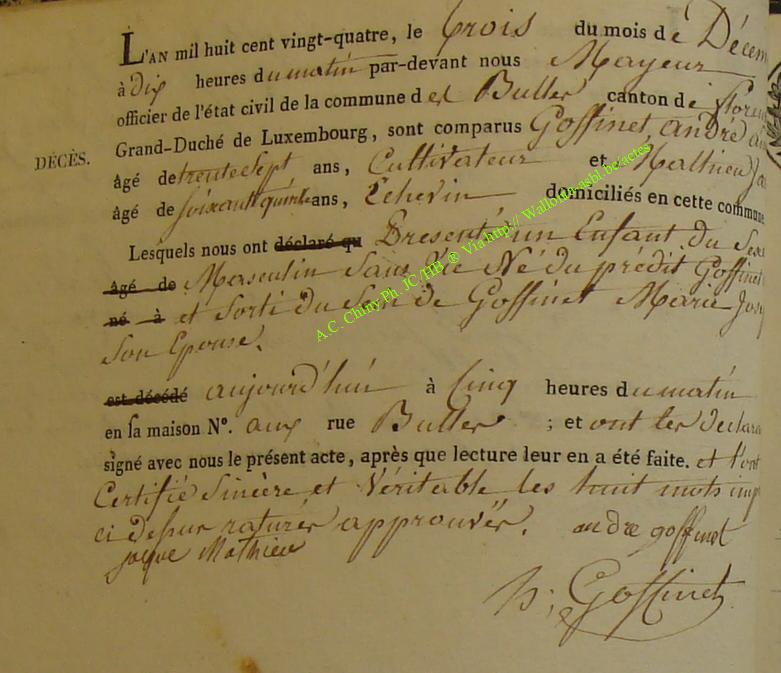 L'AN mil huit cent vingt-quatre, le trois du mois de Décem
à Dix heures du matin par-devant nous Mayeur
officier de l'état civil de la commune de Buller canton de Floren
DÉCÈS.
Grand-Duché de Luxembourg, sont comparus Goffinet, andré
âgé de trente Sept ans, Cultivateur et Mathieu Ja
âgé de soixant quinze ans, Echevin domiciliés en cette commune
Lesquels nous ont déclaré qu Presenté un Enfant du Sexe
âgé de Masculin Sans Vie Né du prédit Goffinet
né à et Sorti du Sein de Goffinet Marie Jos
Son Epouse.
est décédé aujourd'hui à Cinq heures du matin
en sa maison N°. rue Buller ; et ont les Declara
signé avec nous le présent acte, après que lecture leur en a été faite. et l'ont
Certifié Sincère et Véritable les huit mots imp
ci dessus raturés approuvés. andre goffinet
jaque Mathieu
Goffinet
A.C. Chiny Ph. JC/HB ® Via http:// Wallonia-asbl.be/actes